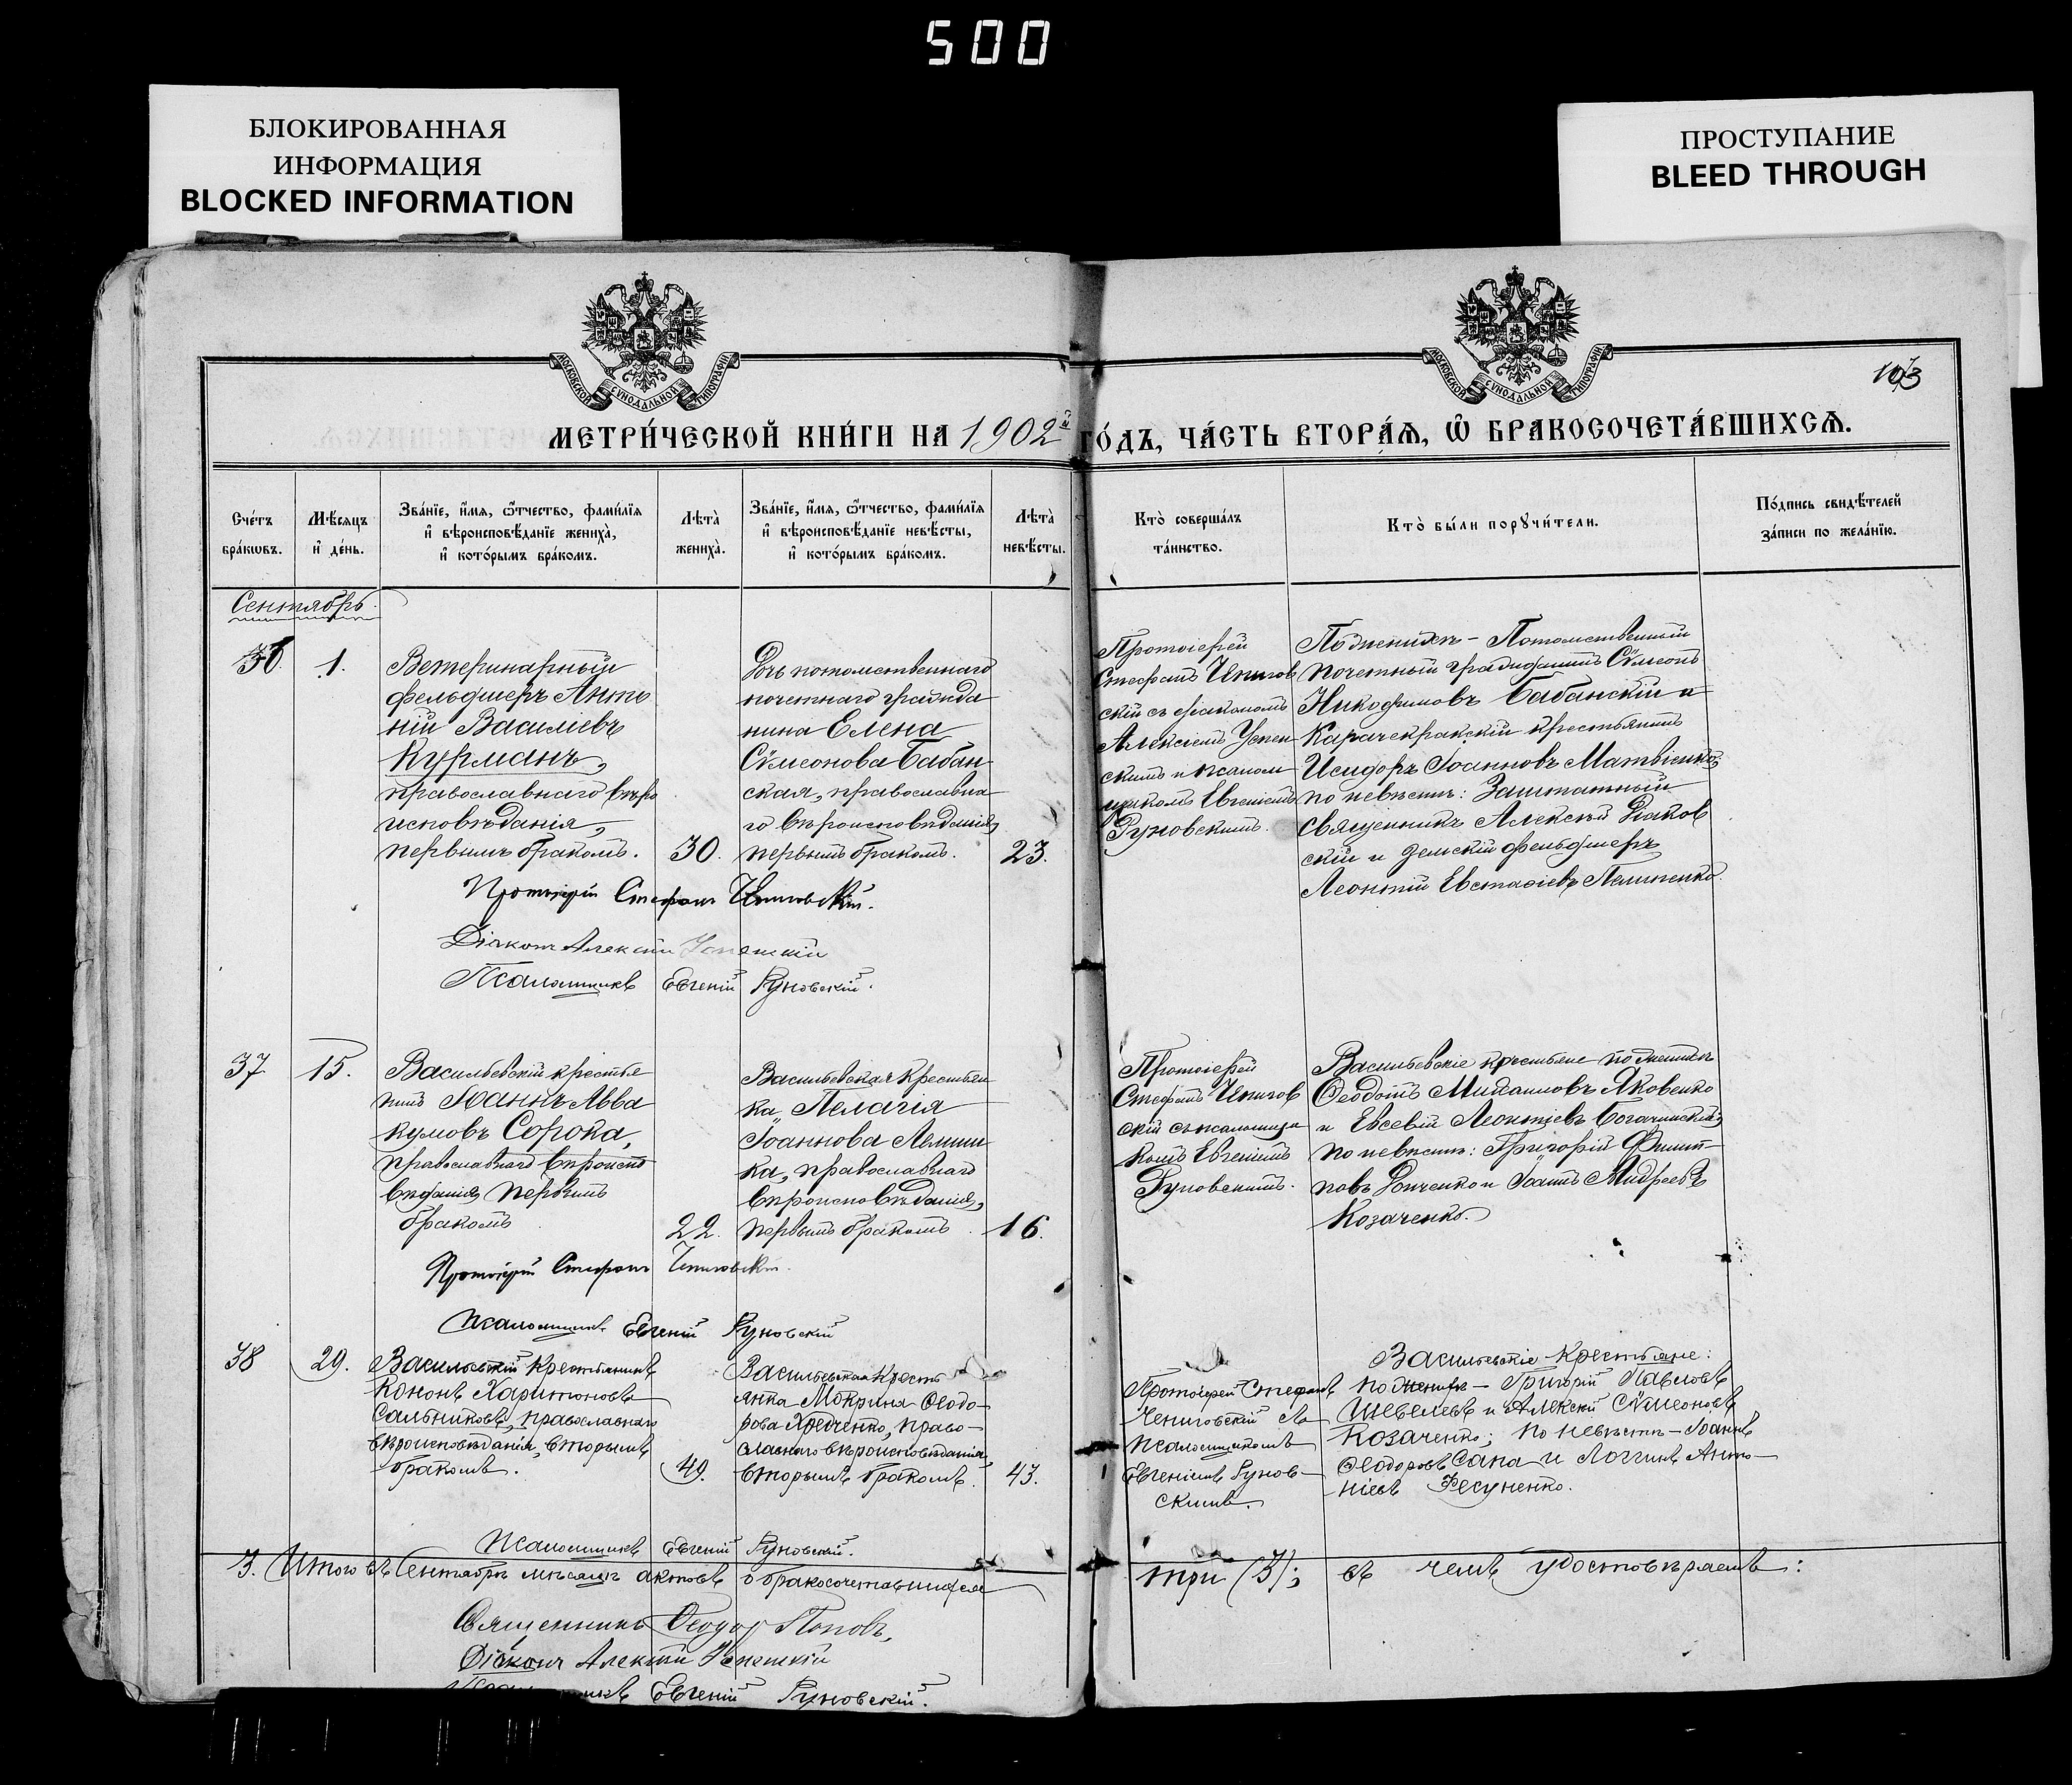 500
БЛОКИРОВАННАЯ
ИНФОРМАЦИЯ
BLOCKED INFORMATION
ПРОСТУПАНИЕ
BLEED THROUGH
МОСКОВСКОЙ СѴНОДАЛЬНОЙ ТИПОГРАФІИ
МОСКОВСКОЙ СѴНОДАЛЬНОЙ ТИПОГРАФІИ
103
МЕТРИ́ЧЕСКОЙ КНИ́ГИ НА 1902й ГО́ДЪ, ЧА́СТЬ ВТОРА́Ѧ, Ѡ БРАКОСОЧЕТА́ВШИХСѦ.
Сче́тъ
бра́кѡвъ.
Мѣ́сяцъ
и҆ де́нь.
Зва́нїе, и҆́мѧ, ѻ҆́тчество, фами́лїѧ
и҆ вѣроисповѣ́данїе жениха̀,
и҆ кото́рымъ бра́комъ.
Лѣта̀
жениха̀.
Зва́нїе, и҆́мѧ, ѻ҆́тчество, фами́лїѧ
и҆ вѣроисповѣ́данїе невѣ́сты,
и҆ кото́рымъ бра́комъ.
Лѣта̀
невѣ́сты.
Кто̀ соверша́лъ
та́инство.
Кто̀ бы́ли порꙋчи́тели.
По́дпись свидѣ́телей
за́писи по жела́нїю.
Сентябрь.
36.
1.
Ветеринарный
фельдшеръ Анто
ній Василіевъ
Курманъ,
православнаго вѣро
исповѣданія,
первымъ бракомъ.
30.
Дочь потомственнаго
почетнаго гражда
нина Елена
Сѵмеонова Бабан
ская, православна
го вѣроисповѣданія,
первымъ бракомъ.
23.
Протоіерей
Стефанъ
скій съ діакономъ
Алексіемъ Успен
скимъ и псалом
щикомъ Евгеніемъ
Руновскимъ.
По женихѣ - Потомственный
почетный гражданинъ Сѵмеонъ
Никодимовъ Бабанскій и
Карачекракскій крестьянинъ
Исидоръ Іоанновъ Матвіенко,
по невѣстѣ: Заштатный
священникъ Алексѣй Діаков
скій и земскій фельдшеръ
Леонтій Евстафіевъ
Протоіерей Стефанъ
Діаконъ Алексій Успенскій
Псаломщикъ Евгеній Руновскій.
37
15.
Васильевскій крестья
нинъ Іоаннъ Авва
кумовъ Сорока,
православнаго вѣроиспо
вѣданія, первымъ
бракомъ
22.
Васильевская крестьян
ка, Пелагія
Іоаннова
ка, православнаго
вѣроисповѣданія,
первымъ бракомъ.
16.
Протоіерей
Стефанъ
скій съ псаломщи
комъ Евгеніемъ
Руновскимъ.
Васильевскіе крестьяне по женихѣ
Ѳеодотъ Михаиловъ Яковенко
и Евсевій Леонтіевъ
по невѣстѣ: Григорій Филип
повъ Донченко и Іоаннъ Андреевъ
Козаченко.
Протоіерей Стефанъ
Псаломщикъ Евгеній Руновскій
38
29.
Васильевскій крестьянинъ
Кононъ Харитоновъ
Сальниковъ, православнаго
вѣроисповѣданія, вторымъ
бракомъ.
49.
Васильевская кресть
янка Мокрина Ѳеодо-
рова право-
славнаго вѣроисповѣданія,
вторымъ бракомъ.
43.
Протоіерей Стефанъ
съ
псаломщикомъ
Евгеніемъ Рунов-
скимъ.
Васильевскіе крестьяне:
по женихѣ - Григорій Павловъ
Шевелевъ и Алексій Сѵмеоновъ
Козаченко; по невѣстѣ - Іоаннъ
Ѳеодоровъ Сапа и Логгинъ Анто-
ніевъ Фесуненко.
Псаломщикъ Евгеній Руновскій.
3. Итого въ Сентябрѣ мѣсяцѣ актовъ о бракосочетавшихся три (3); въ чемъ удостовѣряемъ:
Священникъ Ѳеодоръ Поповъ,
Діаконъ Алексій Успенскій
Псаломщикъ Евгеній Руновскій.